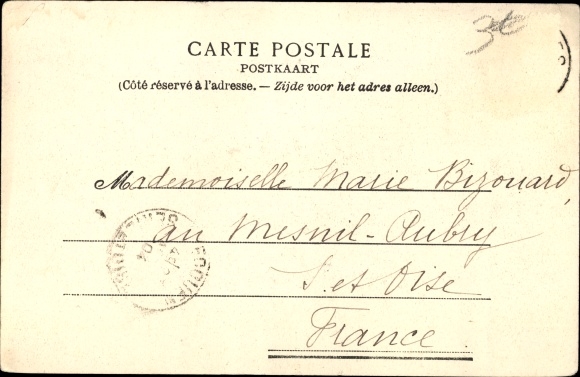 3€
CARTE POSTALE
POSTKAART
(Côté réservé à l'adresse. — Zijde voor het adres alleen.)
Mademoiselle Marie Bizouard,
au Mesnil-Aubry
S. et Oise
France